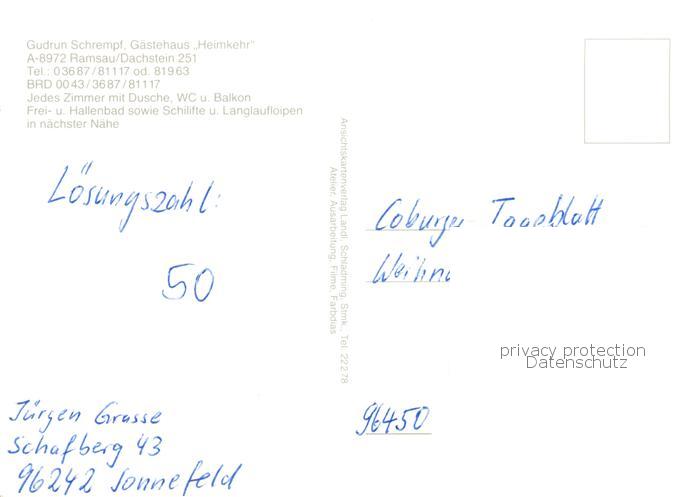 Gudrun Schrempf, Gästehaus „Heimkehr"
A-8972 Ramsau/Dachstein 251
Tel.: 03687/81117 od. 81963
BRD 0043/3687/81117
Jedes Zimmer mit Dusche, WC u. Balkon
Frei- u. Hallenbad sowie Schilifte u. Langlaufloipen
in nächster Nähe
Lösungszahl:
50
Jürgen Grasse
Schafberg 43
96242 Sonnefeld
Ansichtskartenverlag Landl, Schladming, Stmk., Tel. 22278
Atelier, Ausarbeitung, Filme, Farbdias
Coburger Tageblatt
Weihn
96450
privacy protection
Datenschutz